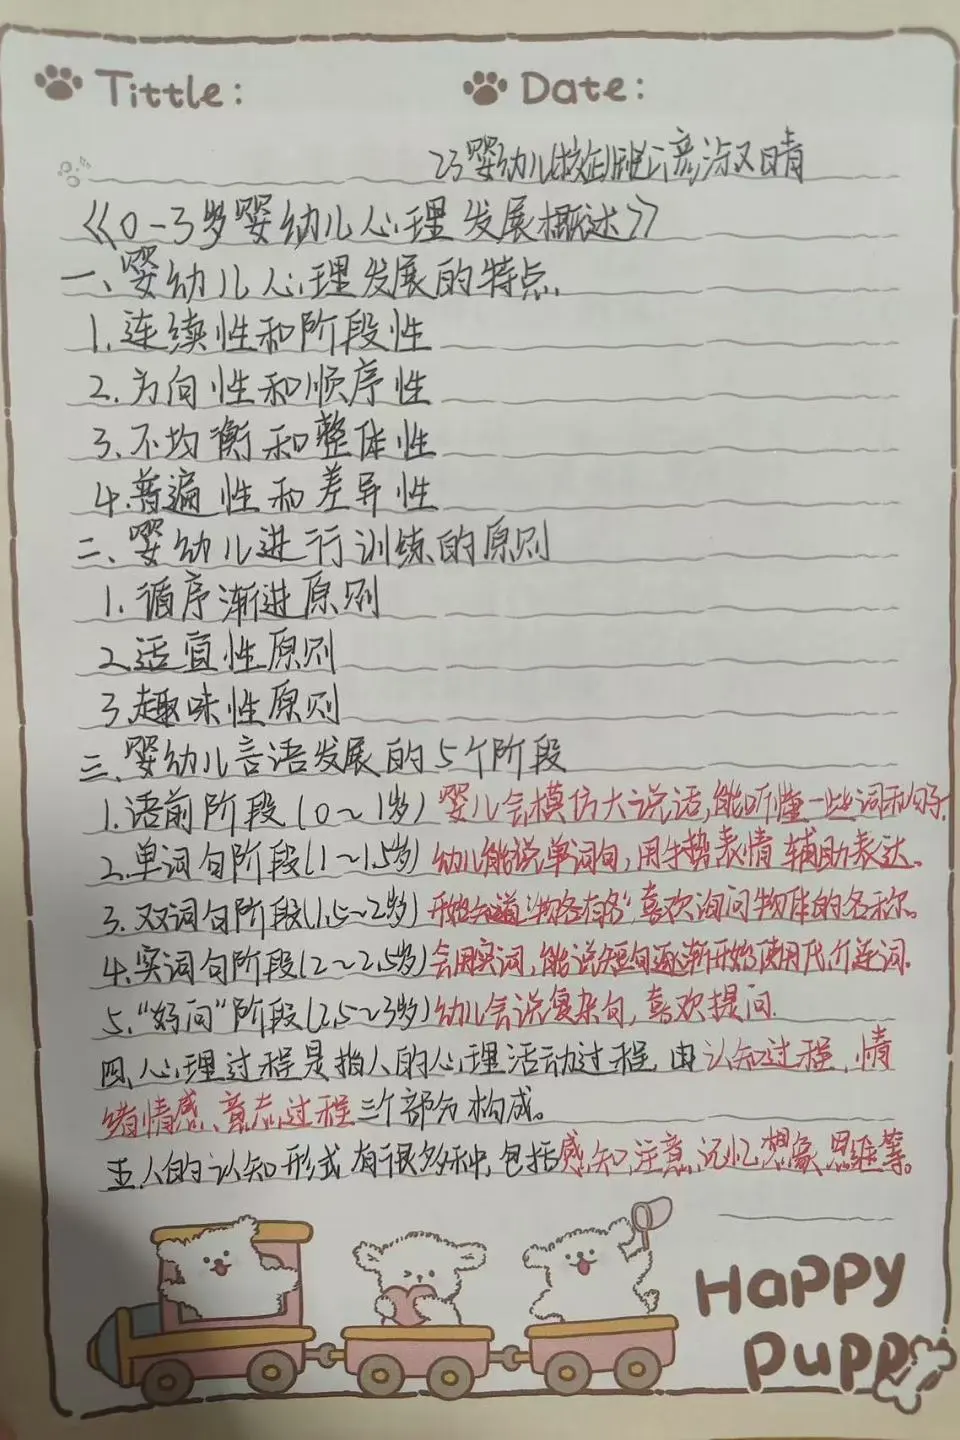 Tittle: Date:
23婴幼儿(校企)班 彦汝又晴
《0-3岁婴幼儿心理发展概述》
一、婴幼儿心理发展的特点
1.连续性和阶段性
2.方向性和顺序性
3.不均衡和整体性
4.普遍性和差异性
二、婴幼儿进行训练的原则
1.循序渐进原则
2.适宜性原则
3.趣味性原则
三、婴幼儿言语发展的5个阶段
1.语前阶段(0~1岁)婴儿会模仿大说话,能听懂一些词和句子.
2.单词句阶段(1~1.5岁)幼儿能说单词句,用手势表情辅助表达。
3.双词句阶段(1.5~2岁)开始知道"物各有名"喜欢询问物体的名称。
4.实词句阶段(2~2.5岁)会用实词,能说短句逐渐开始使用代介连词.
5."好问"阶段(2.5~3岁)幼儿会说复杂句,喜欢提问.
四、心理过程是指人的心理活动过程,由认知过程、情
绪情感、意志过程三个部分构成。
五.人的认知形式有很多种,包括感知,注意,记忆,想象,思维等。
Happy
puppy